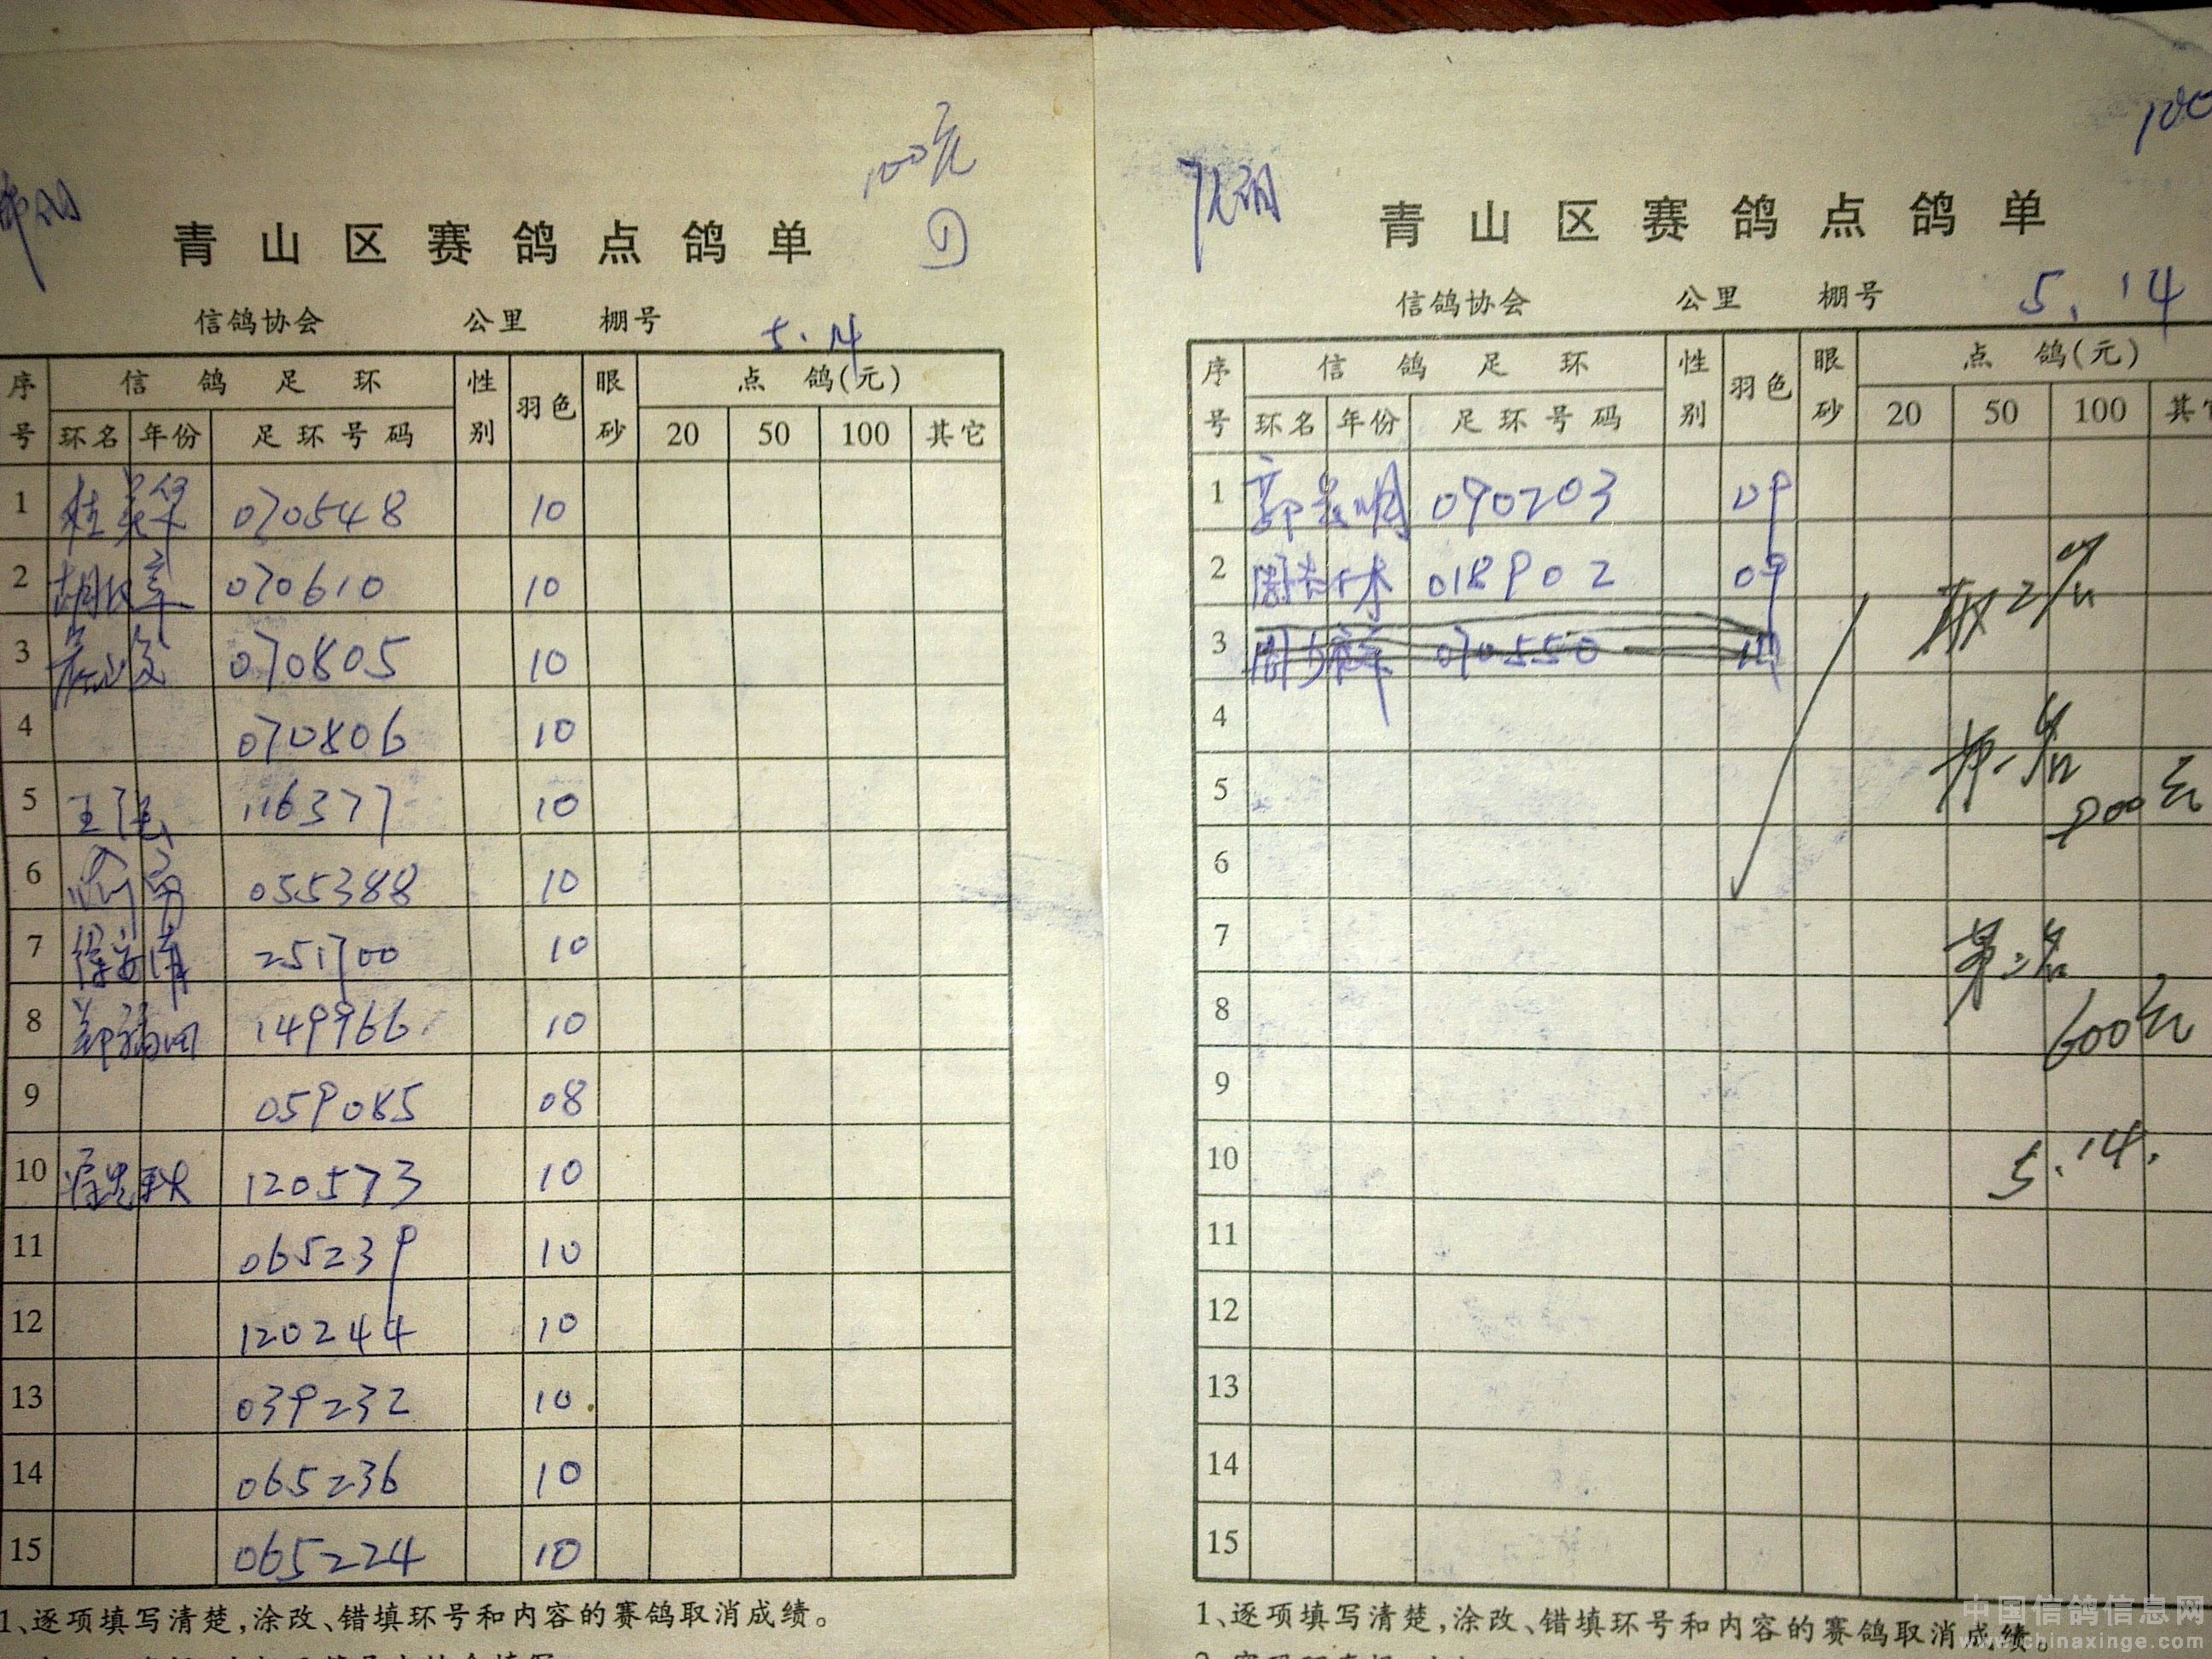 100元
青山区赛鸽点鸽单
信鸽协会 公里 棚号
5.14
序号 信鸽足环 性别 羽色 眼砂 点鸽(元)
环名 年份 足环号码 20 50 100 其它
1 桂英华 070548 10
2 胡汉章 070610 10
3 070805 10
4 070806 10
5 王 116377 10
6 055388 10
7 徐安清 251700 10
8 郑福田 149966 10
9 059085 08
10 120573 10
11 065239 10
12 120244 10
13 039232 10
14 065236 10
15 065224 10
1、逐项填写清楚,涂改、错填环号和内容的赛鸽取消成绩。
100
青山区赛鸽点鸽单
信鸽协会 公里 棚号
5.14
序号 信鸽足环 性别 羽色 眼砂 点鸽(元)
环名 年份 足环号码 20 50 100 其它
1 郭 明 090203 09
2 周 018902 09
3 周 070550
取2名
4
第一名
5
900元
6
7
第二名
8
600元
9
10
5.14.
11
12
13
14
15
1、逐项填写清楚,涂改、错填环号和内容的赛鸽取消成绩。
中国信鸽信息网
www.chinaxinge.com